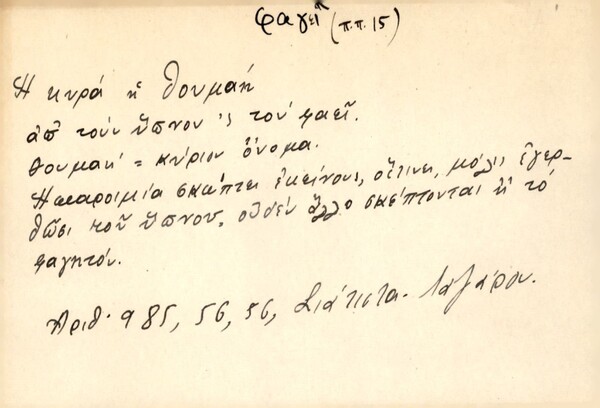 φαγεῖ (π.π. 15)
Ἡ κυρά ἡ Θουμαή
ἀπ' τούν ὕπνον 'ς τού φαεῖ.
Θουμαή = κύριον ὄνομα.
Ἡ παροιμία σκώπτει ἐκείνους, οἵτινες, μόλις ἐγερ-
θῶσι τοῦ ὕπνου, οὐδέν ἄλλο σκέπτονται ἤ τό
φαγητόν.
Ἀριθ. 985, 56, 56, Σιάτιστα. Λαζάρου.